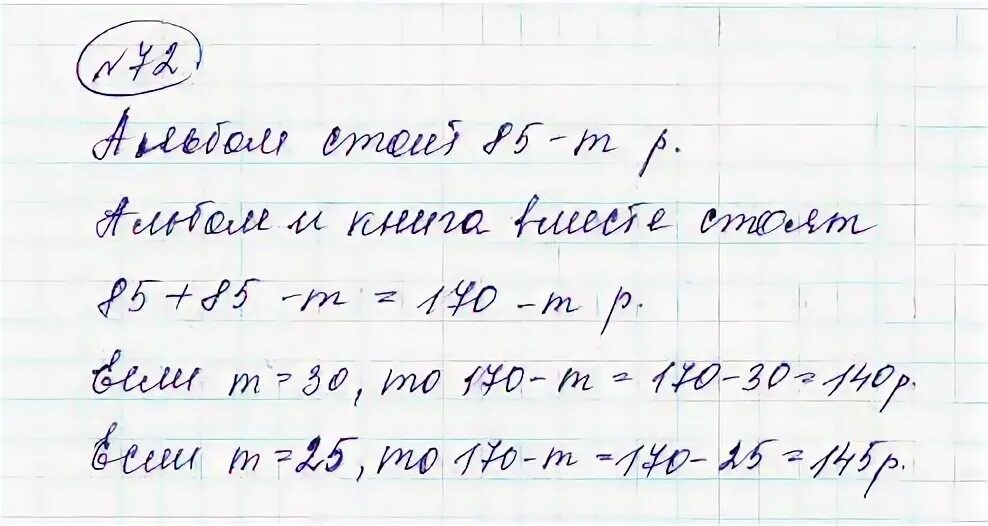 №72
Альбом стоит 85-m р.
Альбом и книга вместе стоят
85+85-m = 170-m р.
Если m=30, то 170-m = 170-30=140р.
Если m=25, то 170-m=170-25=145р.